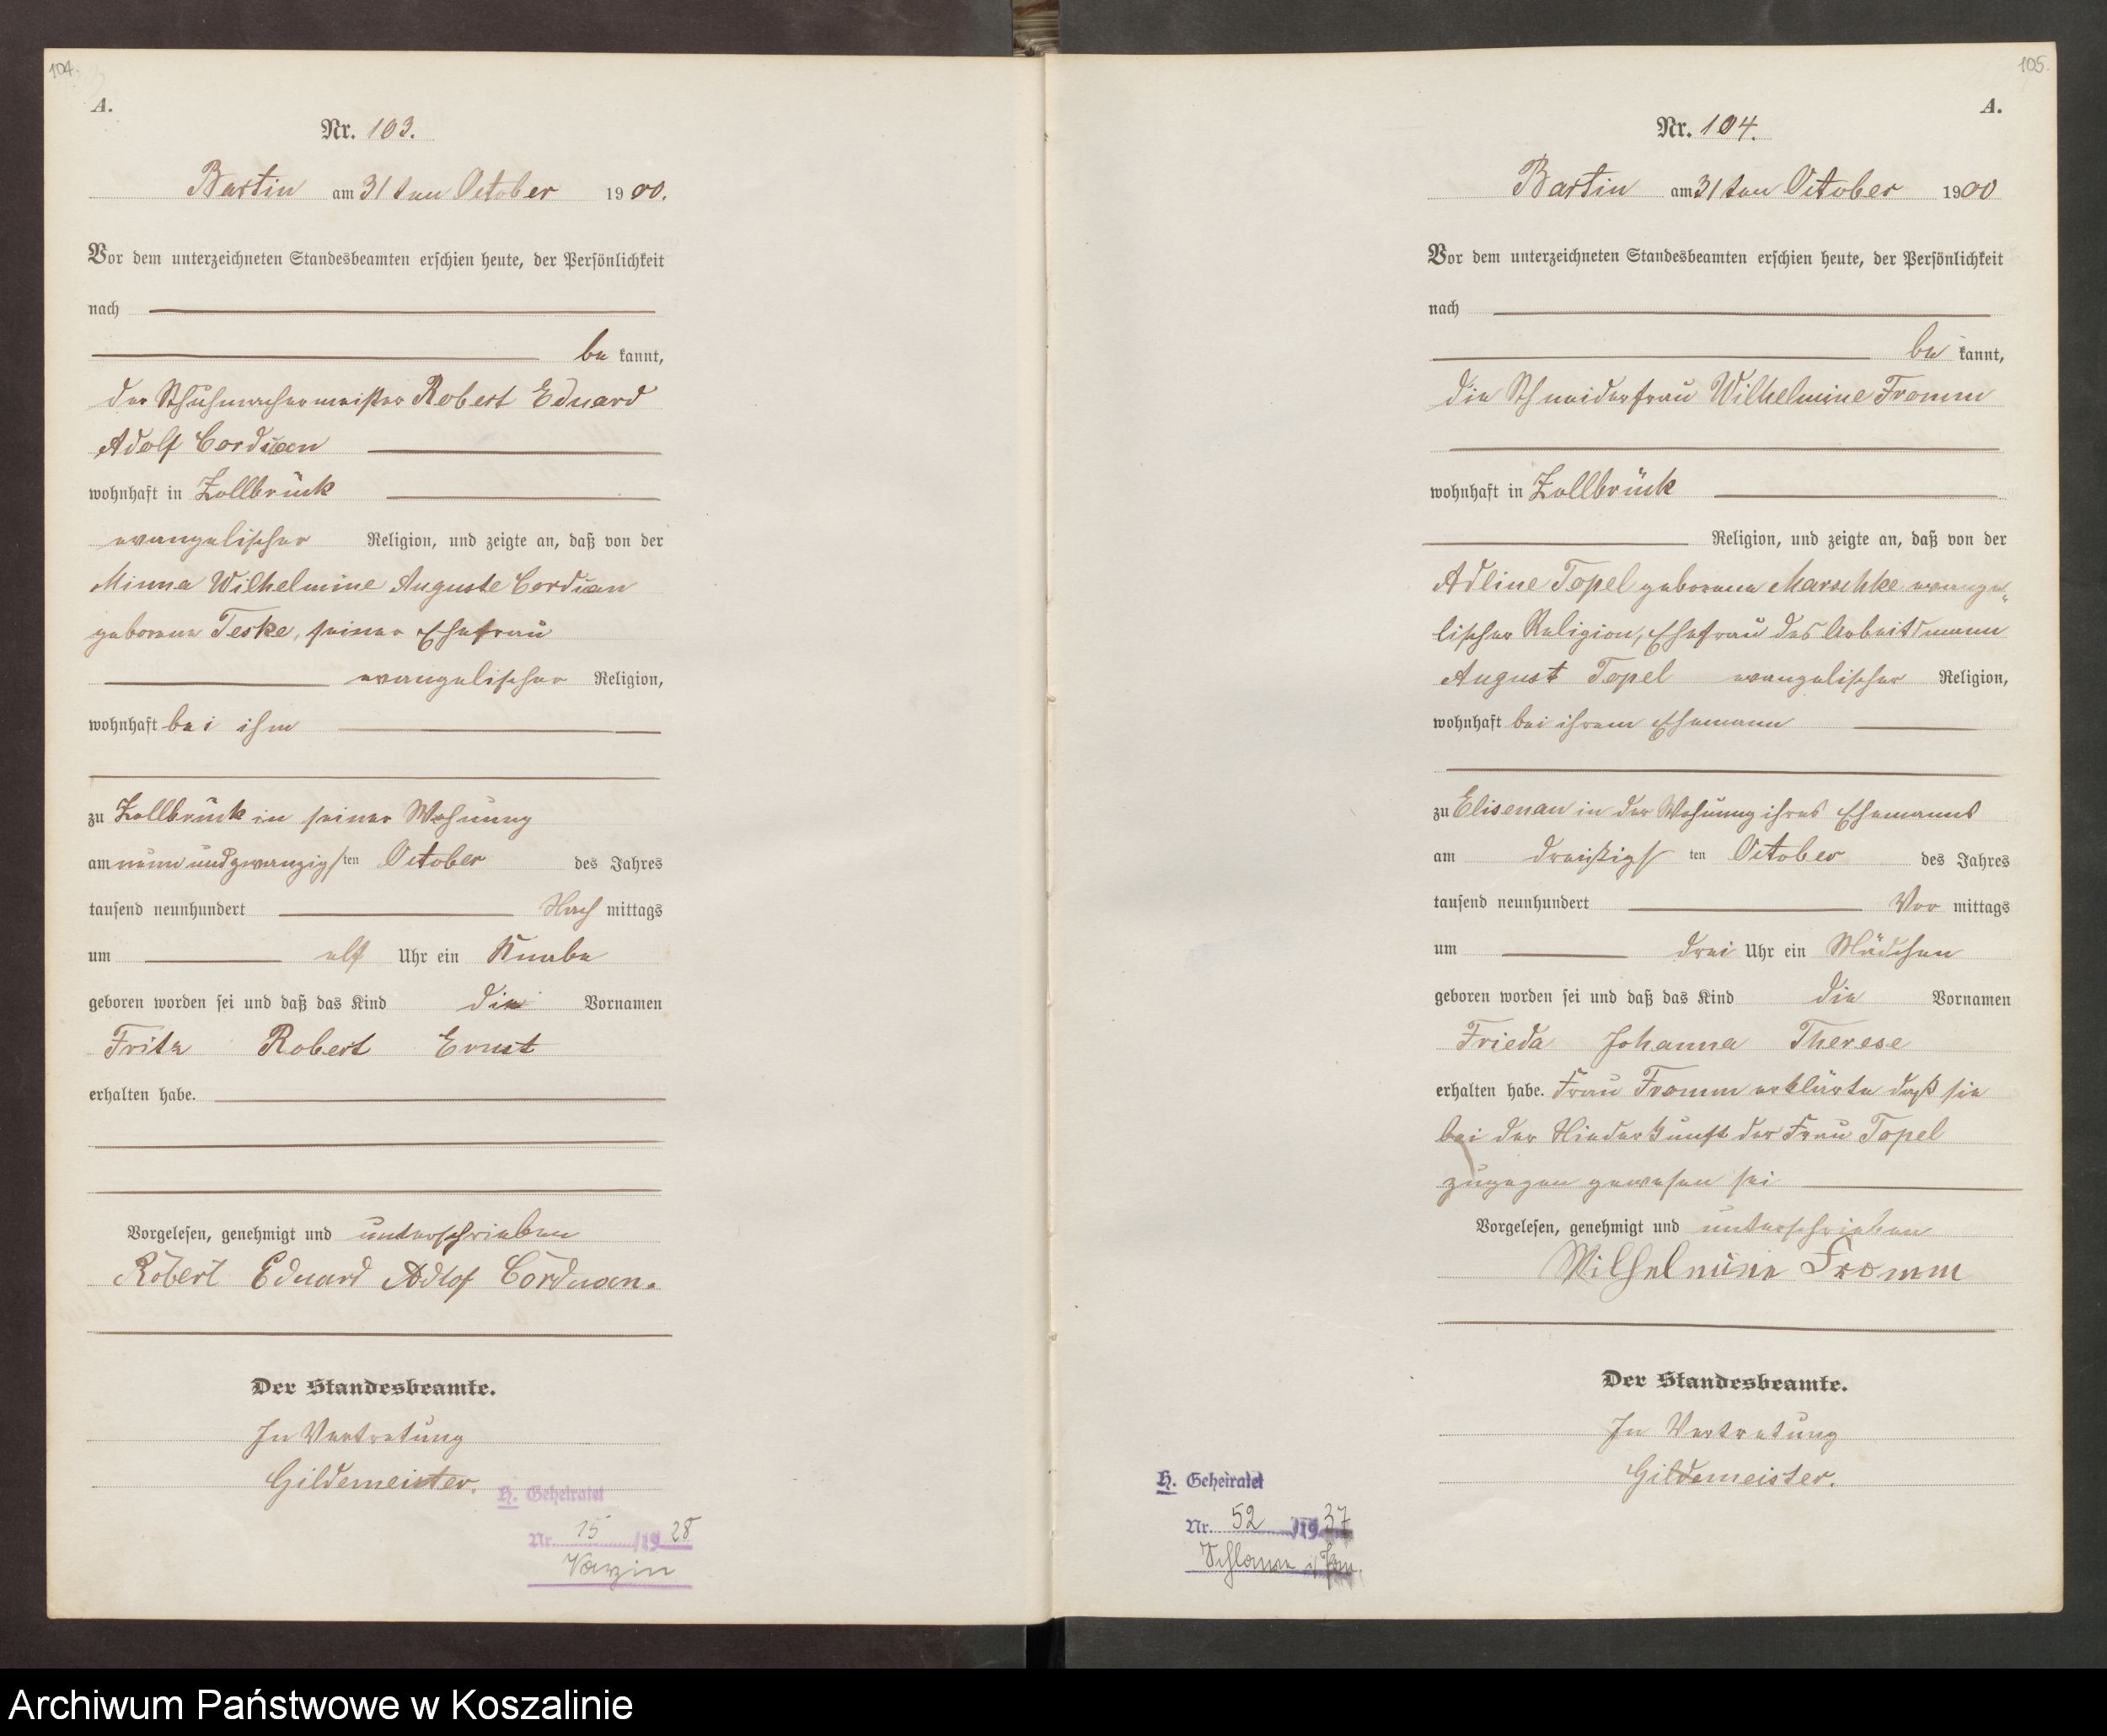 104.
A.
Nr. 103.
Bartin am 31ten October 1900.
Vor dem unterzeichneten Standesbeamten erschien heute, der Persönlichkeit
nach
be kannt,
der Schuhmachermeister Robert Eduard
Adolf Corduan
wohnhaft in Zollbrück
evangelischer Religion, und zeigte an, daß von der
Minna Wilhelmine Auguste Corduan
geborene Teske, seiner Ehefrau
evangelischer Religion,
wohnhaft bei ihm
zu Zollbrück in seiner Wohnung
am neunundzwanzigsten October des Jahres
tausend neunhundert Nach mittags
um elf Uhr ein Knabe
geboren worden sei und daß das Kind die Vornamen
Fritz Robert Ernst
erhalten habe.
Vorgelesen, genehmigt und unterschrieben
Robert Eduard Adlof Corduan.
Der Standesbeamte.
In Vertretung
Gildemeister.
H. Geheiratet
Nr. 15 /19 28
Varzin
105.
A.
Nr. 104.
Bartin am 31ten October 1900
Vor dem unterzeichneten Standesbeamten erschien heute, der Persönlichkeit
nach
be kannt,
die Schneiderfrau Wilhelmine Fromm
wohnhaft in Zollbrück
Religion, und zeigte an, daß von der
Adline Topel geborene Marschke evange„
lischer Religion, Ehefrau des Arbeitsmann
August Topel evangelischer Religion,
wohnhaft bei ihrem Ehemann
zu Elisenau in der Wohnung ihres Ehemanns
am dreißigsten October des Jahres
tausend neunhundert Vor mittags
um drei Uhr ein Mädchen
geboren worden sei und daß das Kind die Vornamen
Frieda Johanna Therese
erhalten habe. Frau Fromm erklärte daß sie
bei der Niederkunft der Frau Topel
zugegen gewesen sei
Vorgelesen, genehmigt und unterschrieben
Wilhelmine Fromm
Der Standesbeamte.
In Vertretung
Gildemeister.
H. Geheiratet
Nr. 52 /19 37
Schlawe i/Pom.
Archiwum Państwowe w Koszalinie